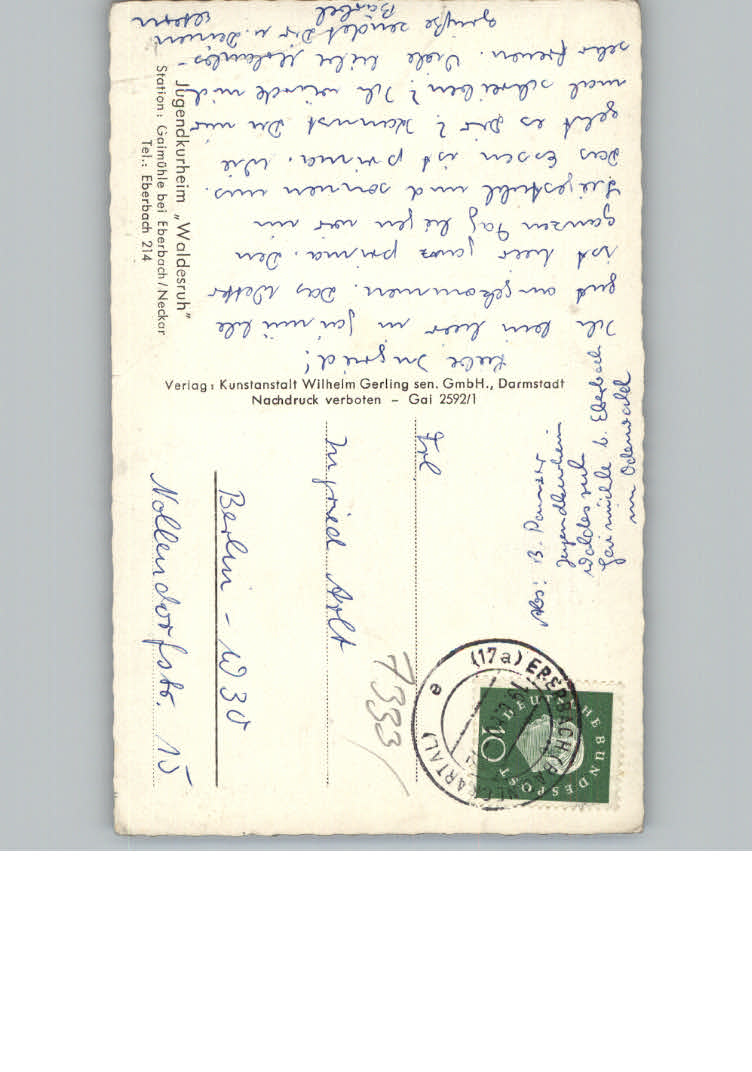 Jugendkurheim „Waldesruh"
Station: Gaimühle bei Eberbach/Neckar
Tel.: Eberbach 214
Liebe Ingrid!
Ich bin hier in Gaimühle
gut angekommen. Das Wetter
ist hier ganz prima. Den
ganzen Tag liegen wir im
Liegestuhl und sonnen uns.
Das Essen ist prima. Wie
geht es Dir? Kannst Du mir
mal schreiben? Ich würde mich
sehr freuen. Viele liebe Urlaubs-
grüße sendet Dir u. Deinen
Eltern
Bärbel
Verlag: Kunstanstalt Wilhelm Gerling sen. GmbH., Darmstadt
Nachdruck verboten – Gai 2592/1
Abs: B.
Jugendkurheim
Waldesruh
Gaimühle b. Eberbach
im Odenwald
(17a) EBERBACH (BADEN)
(NECKARTAL)
e
DEUTSCHE BUNDESPOST
10
Frl.
Ingrid Arlt
Berlin - W 30
Nollendorfstr. 15
7333/